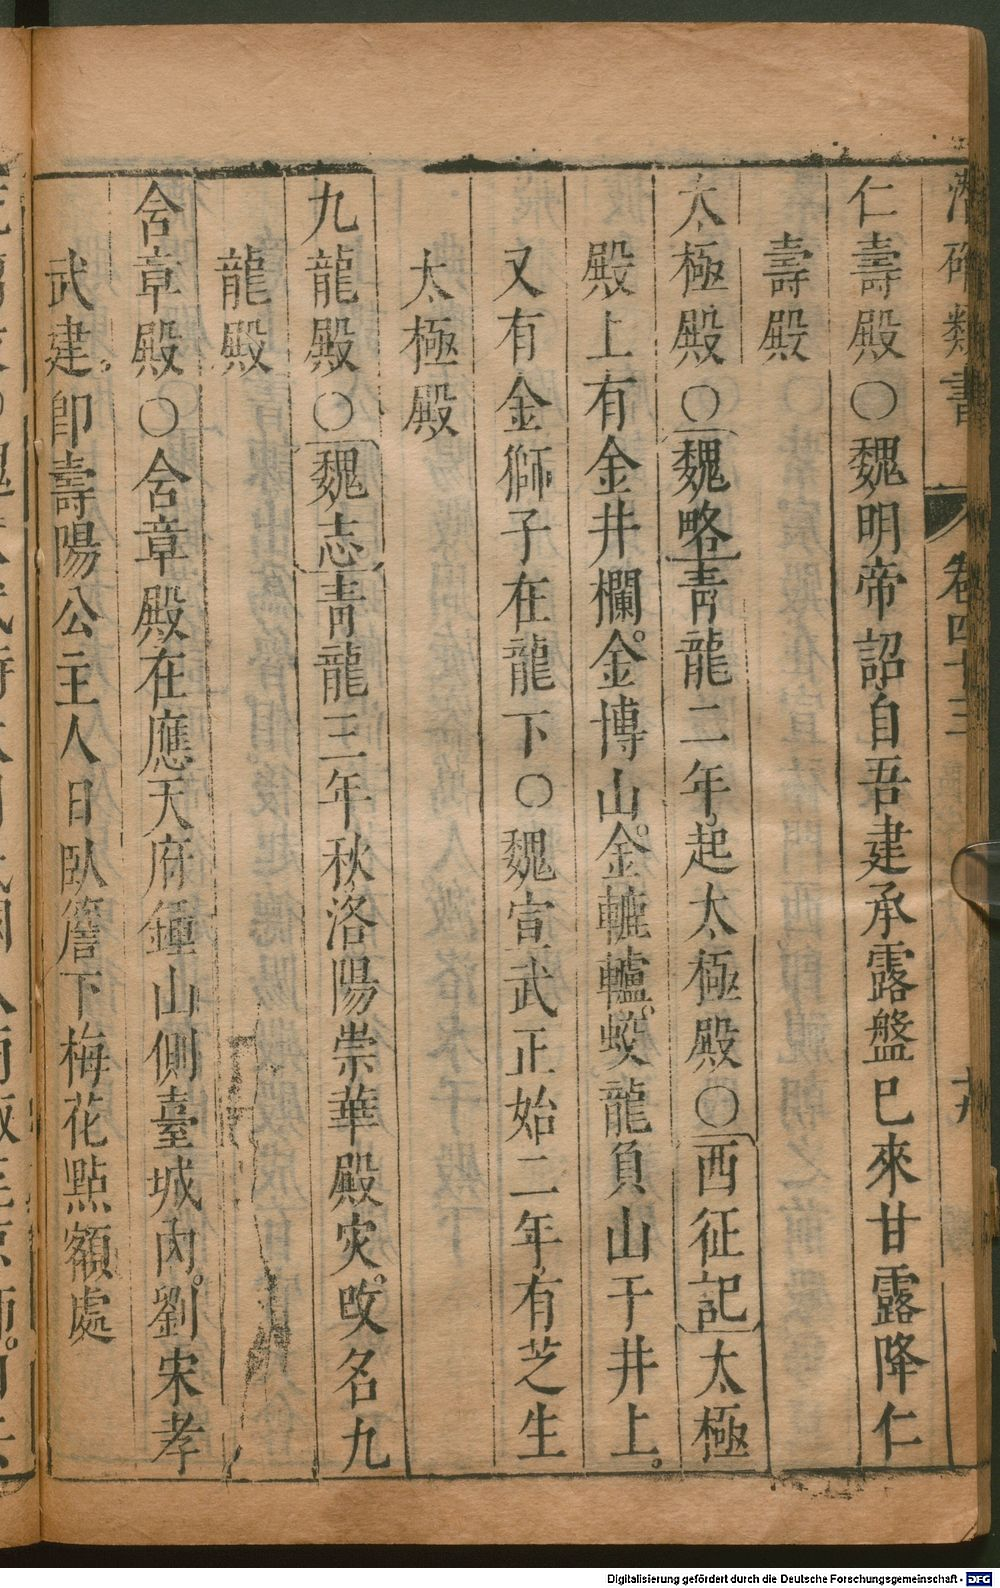 潛確類書 卷四十三 廿
仁壽殿〇魏明帝詔自吾建承露盤已來甘露降仁
壽殿
太極殿〇魏略青龍二年起太極殿〇西征記太極
殿上有金井欄金博山金轆轤蛟龍負山于井上
又有金獅子在龍下〇魏宣武正始二年有芝生
太極殿
九龍殿〇魏志青龍三年秋洛陽崇華殿灾改名九
龍殿
含章殿〇含章殿在應天府鍾山側臺城內劉宋孝
武建卽壽陽公主人日臥簷下梅花點額處
Digitalisierung gefördert durch die Deutsche Forschungsgemeinschaft - DFG